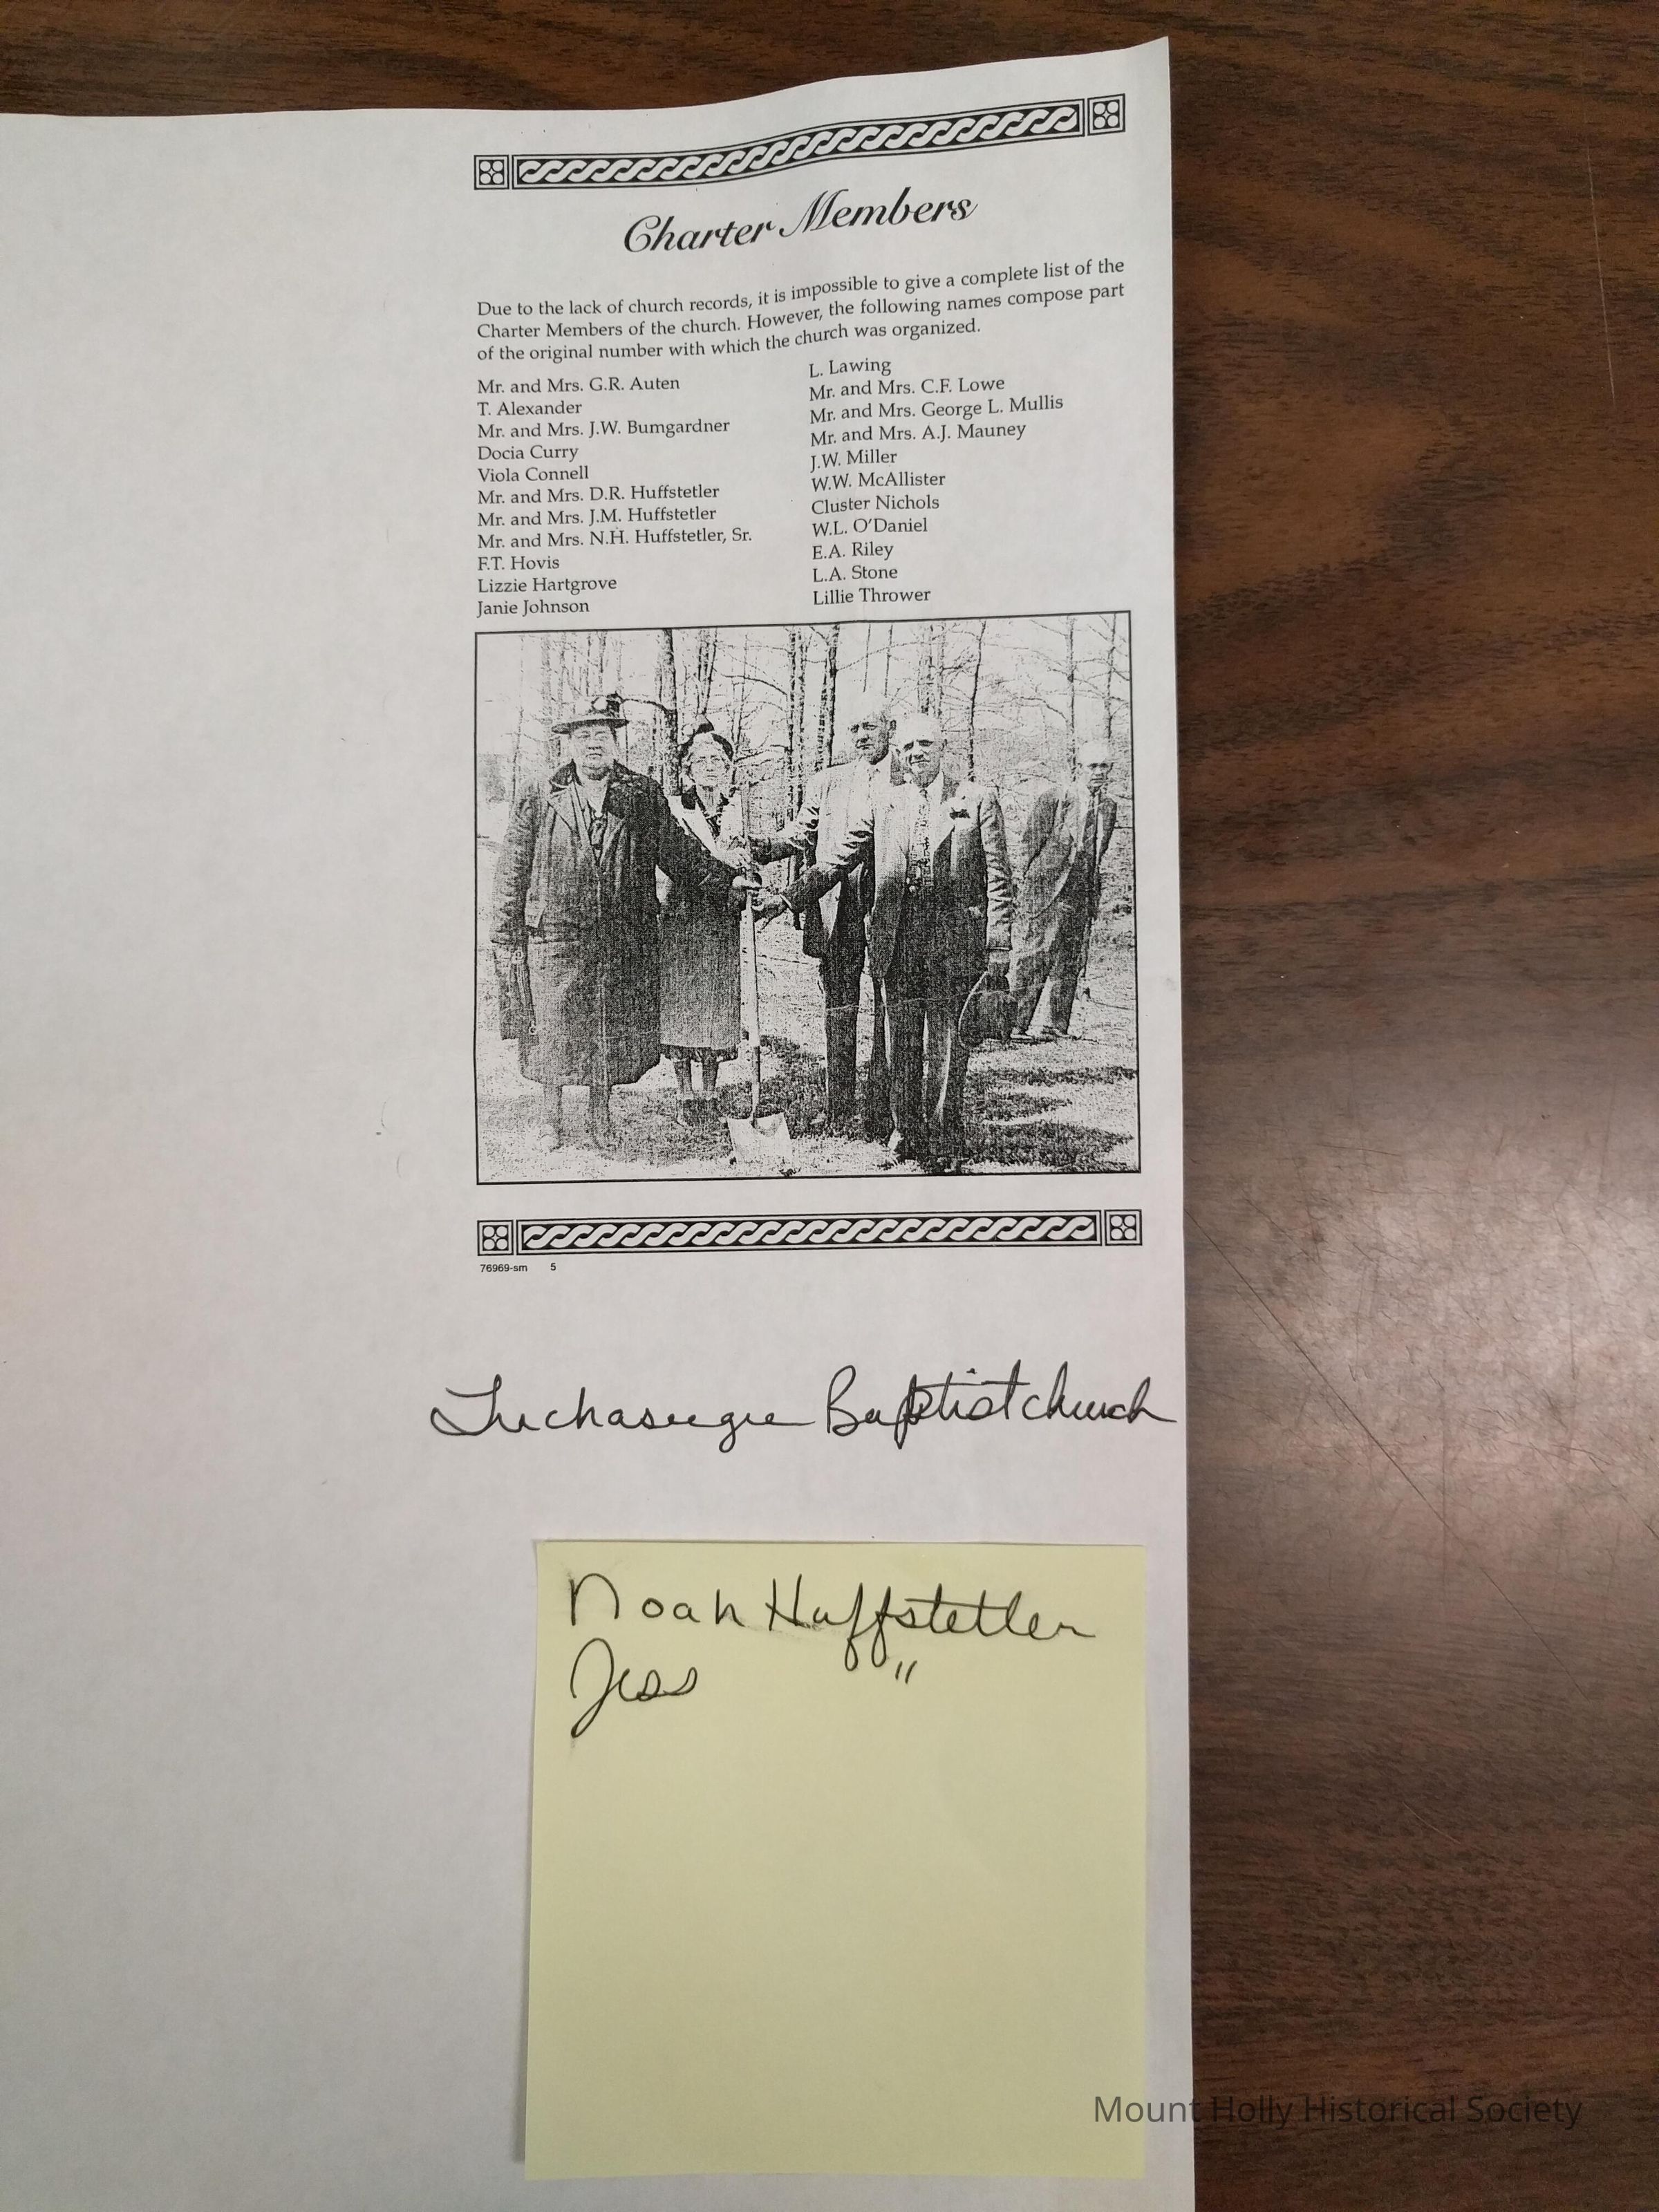 Charter Members
Due to the lack of church records, it is impossible to give a complete list of the
Charter Members of the church. However, the following names compose part
of the original number with which the church was organized.
Mr. and Mrs. G.R. Auten
T. Alexander
Mr. and Mrs. J.W. Bumgardner
Docia Curry
Viola Connell
Mr. and Mrs. D.R. Huffstetler
Mr. and Mrs. J.M. Huffstetler
Mr. and Mrs. N.H. Huffstetler, Sr.
F.T. Hovis
Lizzie Hartgrove
Janie Johnson
L. Lawing
Mr. and Mrs. C.F. Lowe
Mr. and Mrs. George L. Mullis
Mr. and Mrs. A.J. Mauney
J.W. Miller
W.W. McAllister
Cluster Nichols
W.L. O'Daniel
E.A. Riley
L.A. Stone
Lillie Thrower
76969-sm 5
Tuchaseegee Baptist church
Noah Huffstetler
Jess "
Mount Holly Historical Society